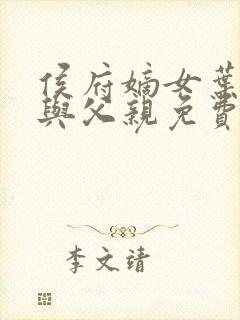 侯府嫡女葉
與父親免費
李文靖